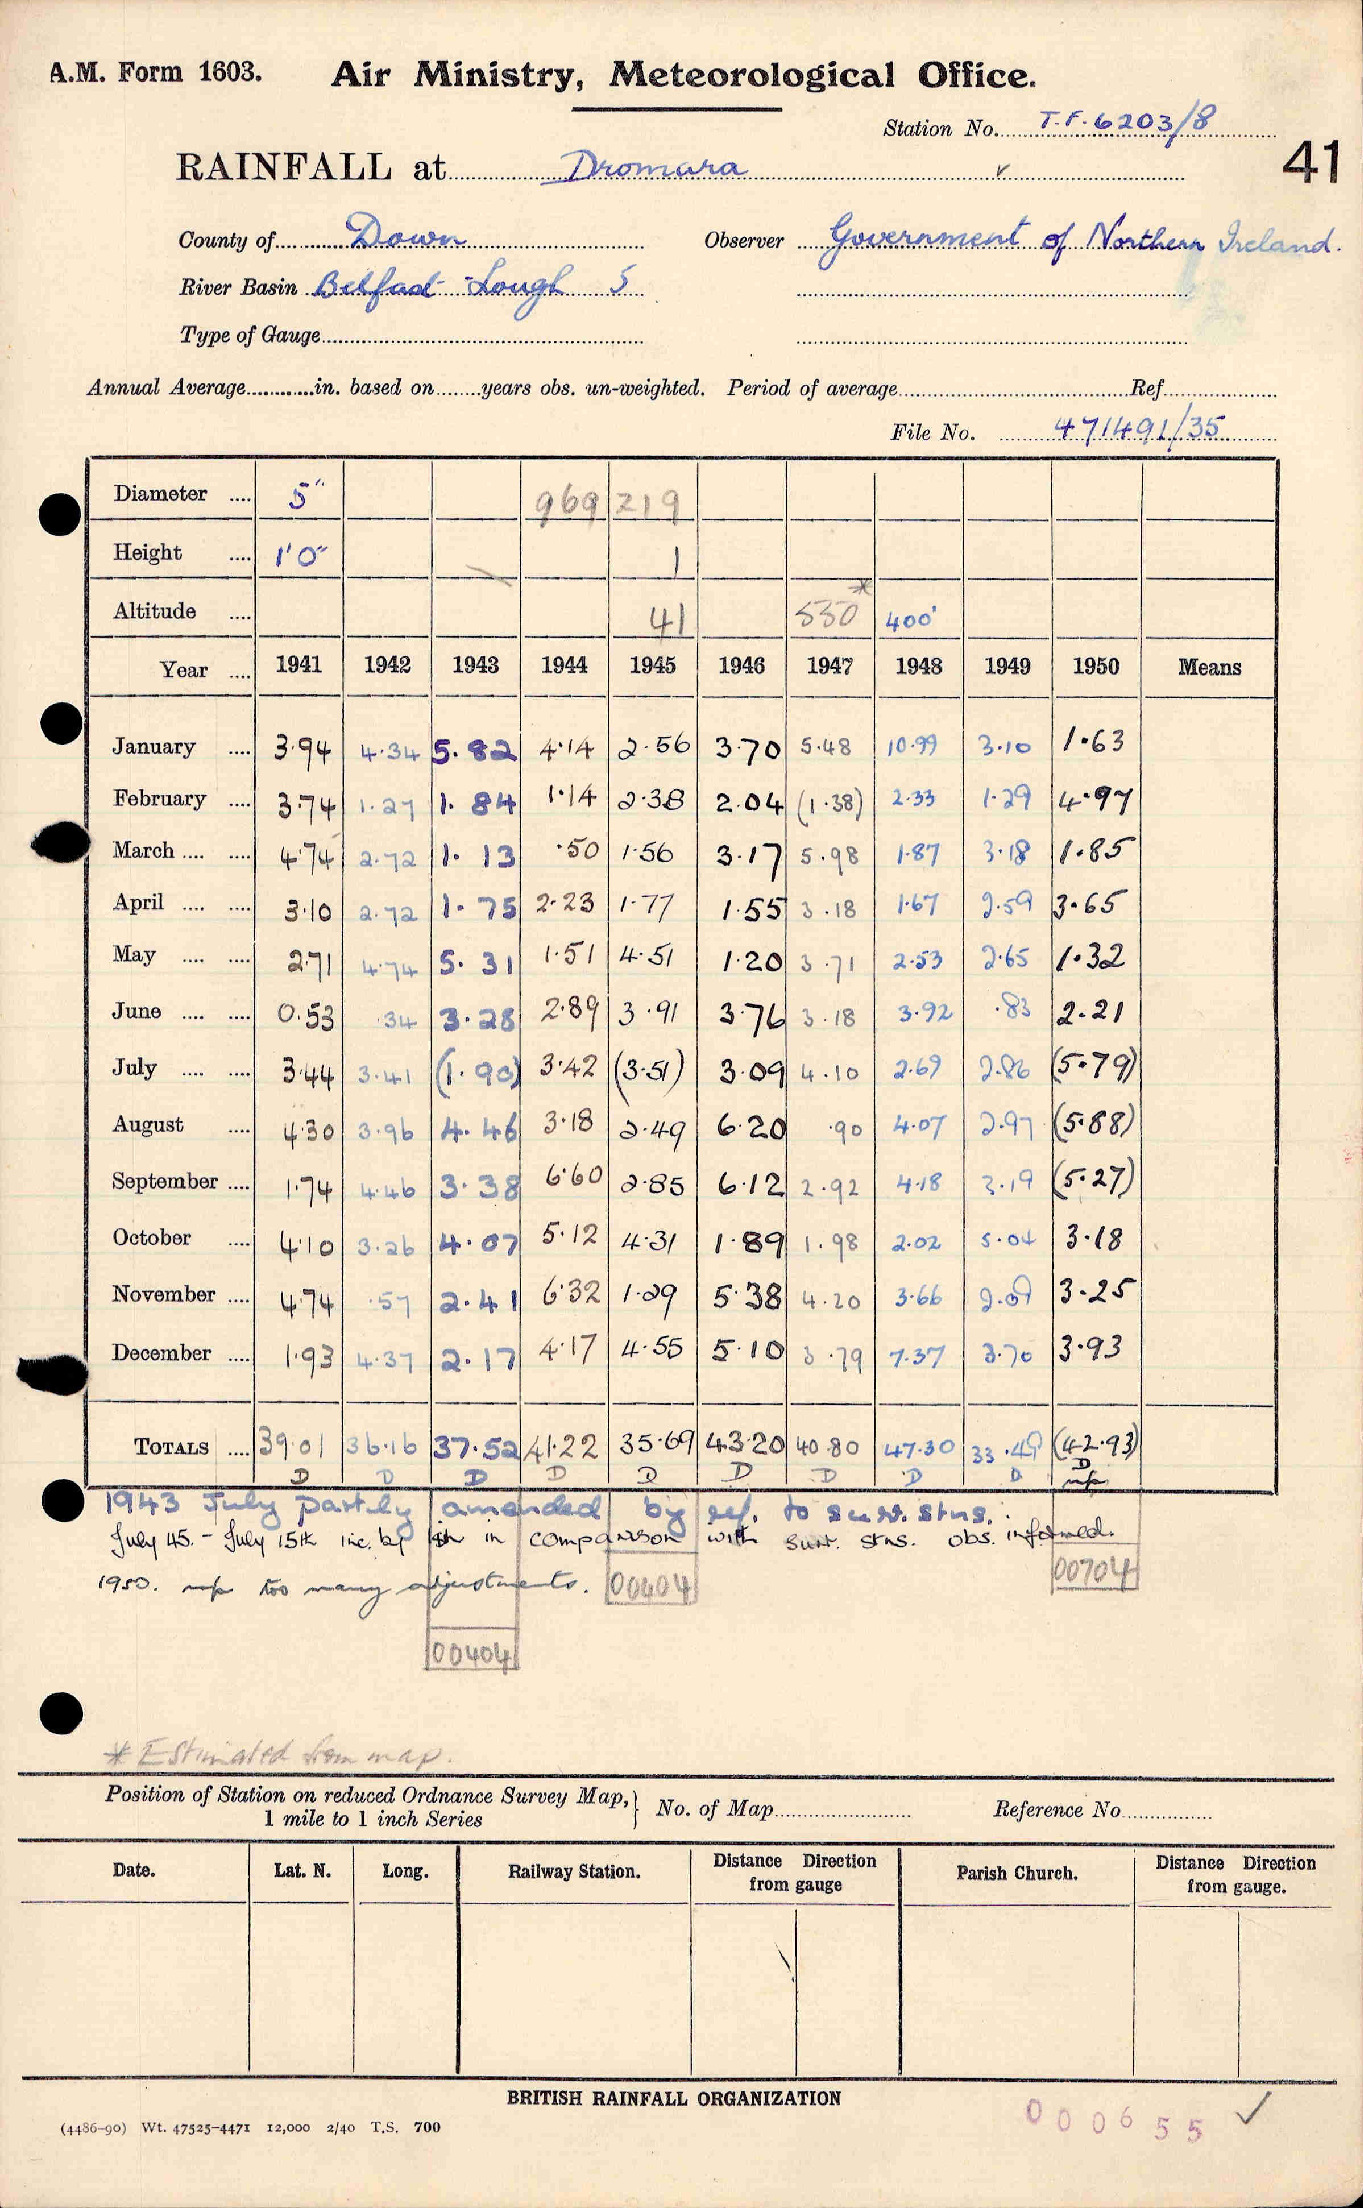 A.M. Form 1603. Air Ministry, Meteorological Office.
Station No. T.F. 6203/8
RAINFALL at Dromara
41
County of Down Observer Government of Northern Ireland.
River Basin Belfast Lough 5
Type of Gauge
Annual Average in. based on years obs. un-weighted. Period of average Ref.
File No. 471491/35
Diameter 5" 969 219
Height 1'0" 1
Altitude 41 550* 400'
Year 1941 1942 1943 1944 1945 1946 1947 1948 1949 1950 Means
January 3.94 4.34 5.82 4.14 2.56 3.70 5.48 10.99 3.10 1.63
February 3.74 1.27 1.84 1.14 2.38 2.04 (1.38) 2.33 1.29 4.97
March 4.74 2.72 1.13 .50 1.56 3.17 5.98 1.87 3.18 1.85
April 3.10 2.72 1.75 2.23 1.77 1.55 3.18 1.67 2.59 3.65
May 2.71 4.74 5.31 1.51 4.51 1.20 3.71 2.53 2.65 1.32
June 0.53 .34 3.28 2.89 3.91 3.76 3.18 3.92 .83 2.21
July 3.44 3.41 (1.90) 3.42 (3.51) 3.09 4.10 2.69 2.86 (5.79)
August 4.30 3.96 4.46 3.18 2.49 6.20 .90 4.07 2.97 (5.88)
September 1.74 4.46 3.38 6.60 2.85 6.12 2.92 4.18 3.19 (5.27)
October 4.10 3.26 4.07 5.12 4.31 1.89 1.98 2.02 5.04 3.18
November 4.74 .57 2.41 6.32 1.29 5.38 4.20 3.66 2.09 3.25
December 1.93 4.37 2.17 4.17 4.55 5.10 3.79 7.37 3.70 3.93
TOTALS 39.01 36.16 37.52 41.22 35.69 43.20 40.80 47.30 33.49 (42.93)
D D D D D D D D D D
np
1943 July partly amended by ref. to surr. stns.
July 45. - July 15th inc. by in comparison with surr. stns. obs. informed.
1950. np too many adjustments. 00404 00704
00404
* Estimated from map.
Position of Station on reduced Ordnance Survey Map, 1 mile to 1 inch Series } No. of Map Reference No
Date. Lat. N. Long. Railway Station. Distance Direction from gauge Parish Church. Distance Direction from gauge.
BRITISH RAINFALL ORGANIZATION
(4486-90) Wt. 47525-4471 12,000 2/40 T.S. 700
000655